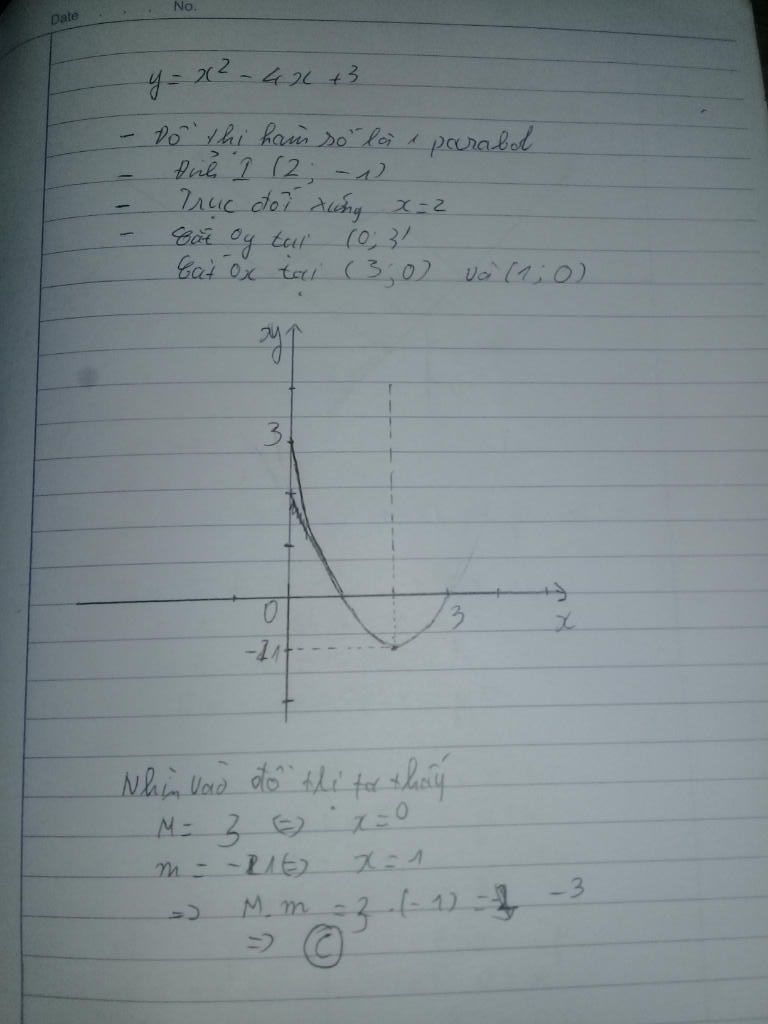 Date . . . No.
y = x² - 4x + 3
- Đồ thị hàm số là 1 parabol
- Đỉnh I (2; -1)
- Trục đối xứng x=2
- Cắt Oy tại (0; 3)
Cắt Ox tại (3; 0) và (1; 0)
y
3
0
3
x
-1
Nhìn vào đồ thị ta thấy
M = 3 (=) x=0
m = -1 (=) x = 1
=> M.m = 3 .(-1) = -3
=> C